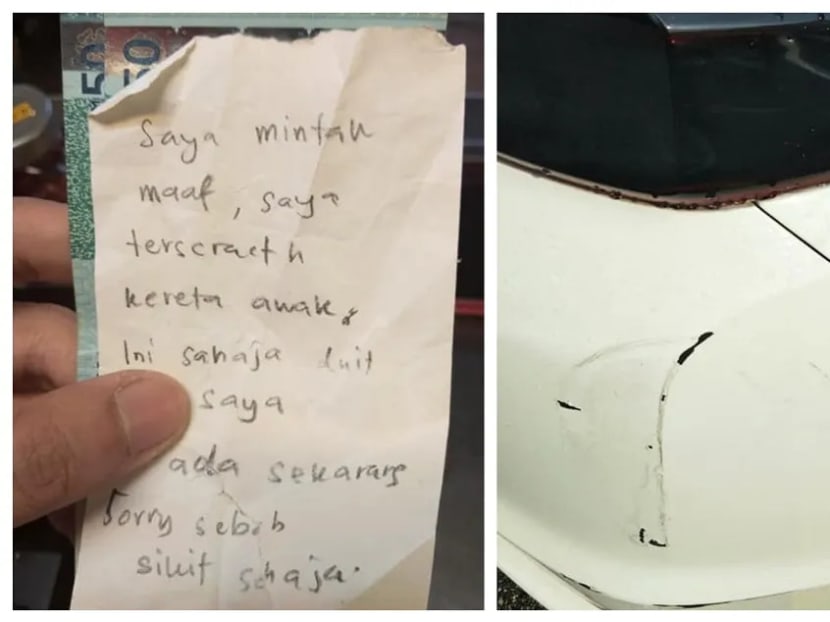 50
50
Saya mintak
maaf, saya
terscracth
kereta awak,
Ini sahaja duit
saya
ada sekarang
Sorry sebab
sikit sahaja.